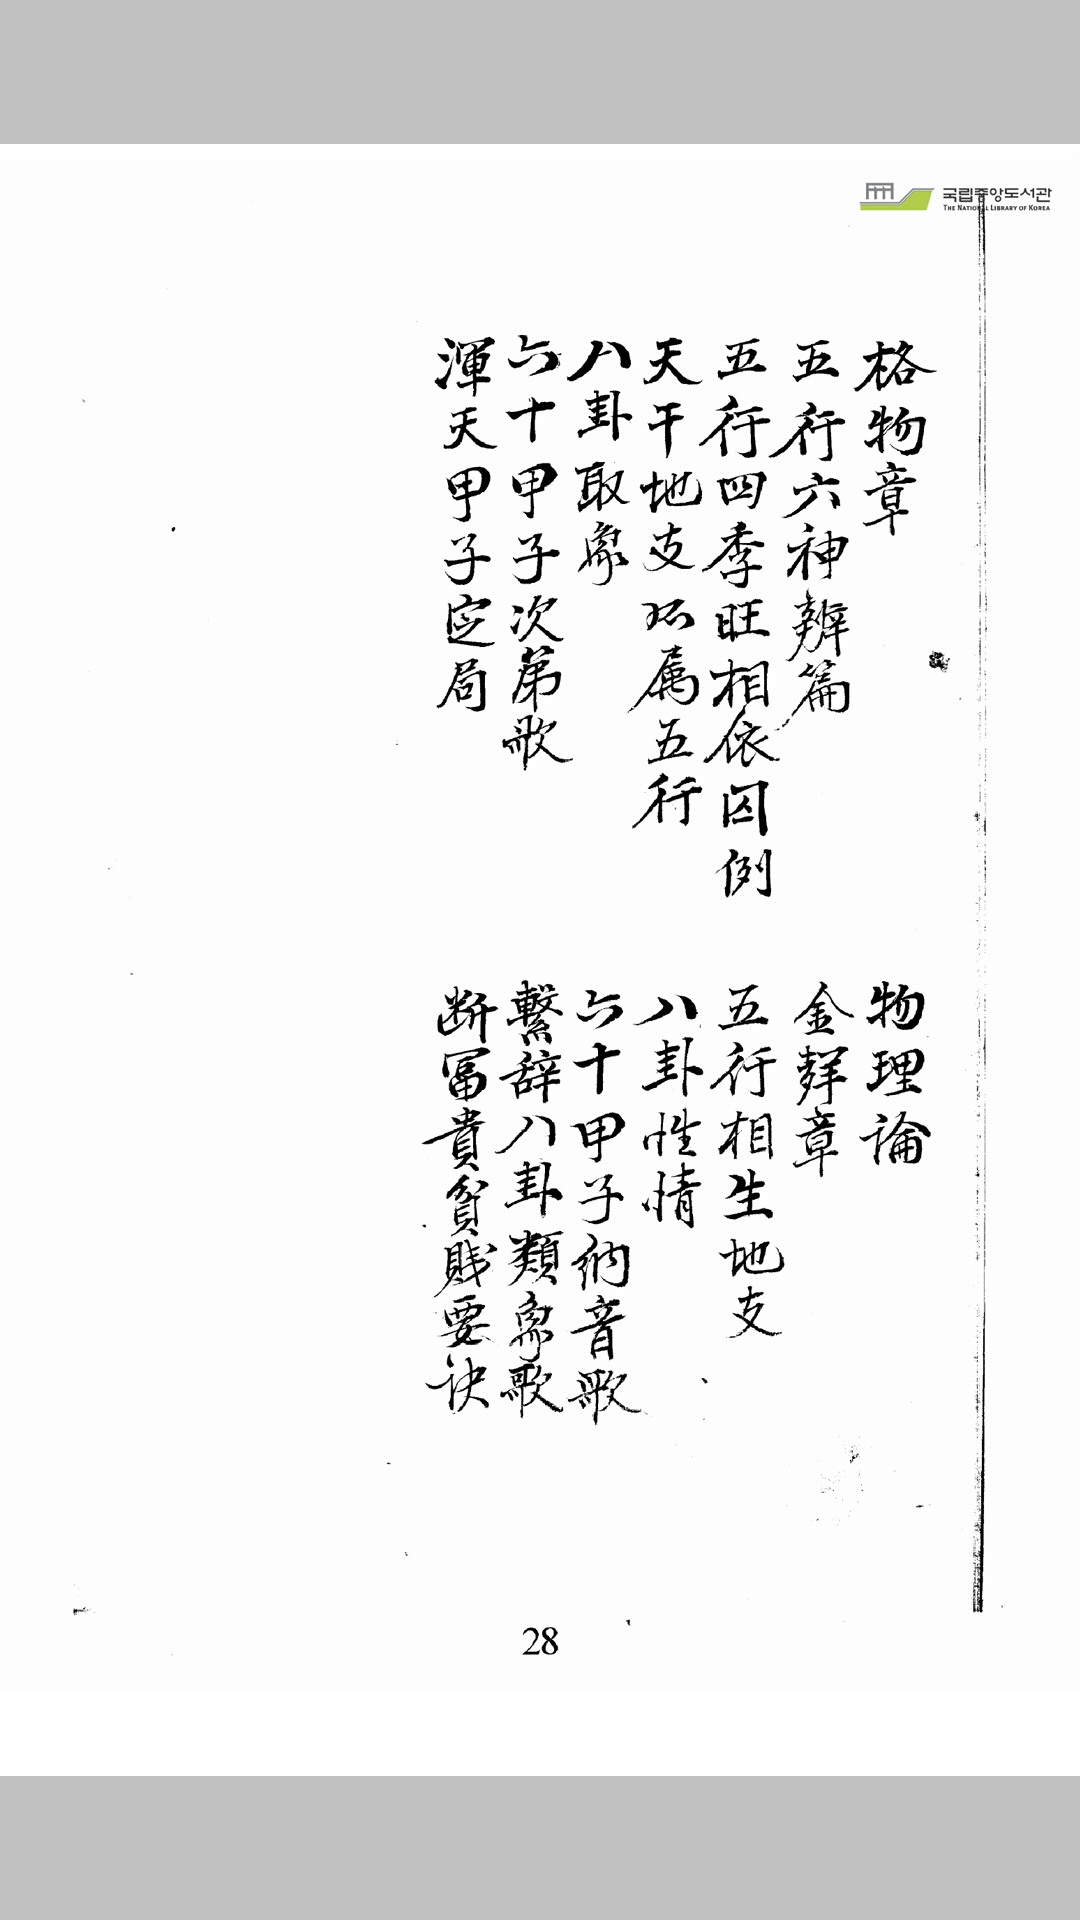 국립중앙도서관
THE NATIONAL LIBRARY OF KOREA
格物章
物理論
五行六神辨篇
金鎽章
五行四季旺相依囚例
五行相生地支
天干地支所属五行
八卦性情
八卦取象
六十甲子納音歌
六十甲子次第歌
繫辞八卦類象歌
渾天甲子定局
断冨貴貧賤要訣
28